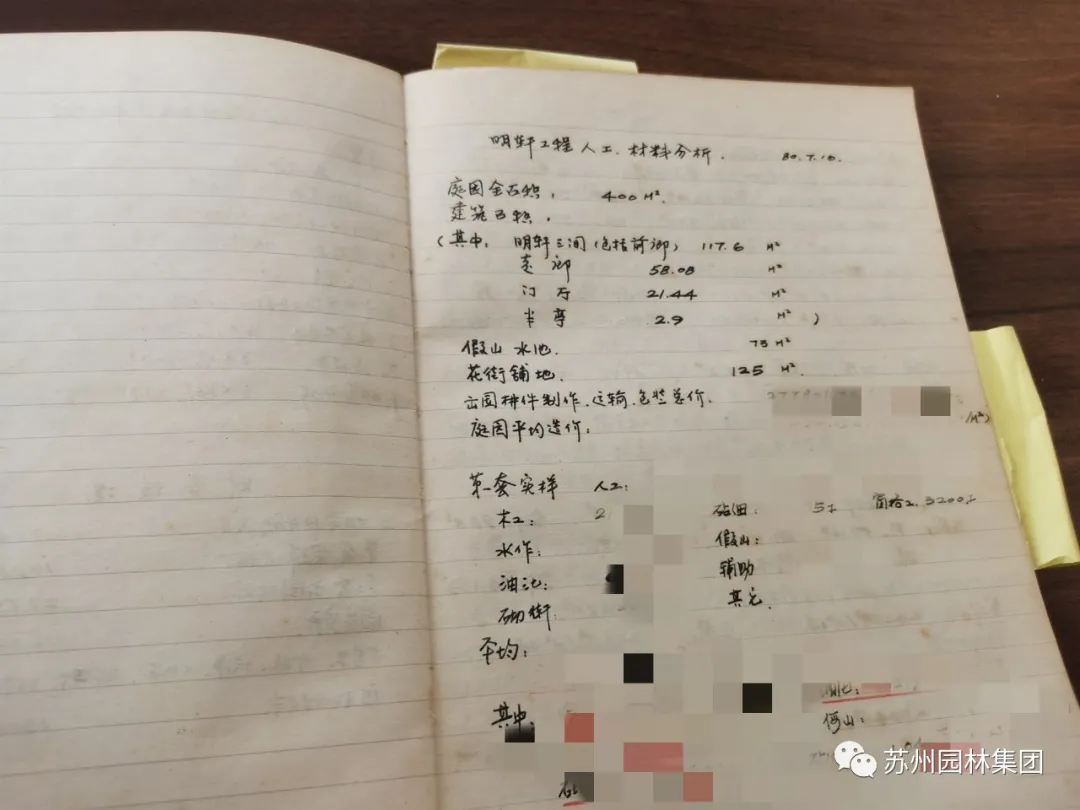 明轩工程人工、材料分析. 80.7.16.
庭园全面积: 400 M².
建筑面积.
(其中: 明轩三间(包括前廊) 117.6 M²
走廊 58.08 M²
门厅 21.44 M²
半亭 2.9 M² )
假山水池. 75 M²
花街铺地. 125 M².
出国构件制作、运输、包装总价. /M²)
庭园平均造价:
第一套实样 人工:
木工: 2 5工 窗格工. 3200工
水作: 假山:
油漆: 辅助
砌街 其它.
平均:
其中: 假山:
苏州园林集团